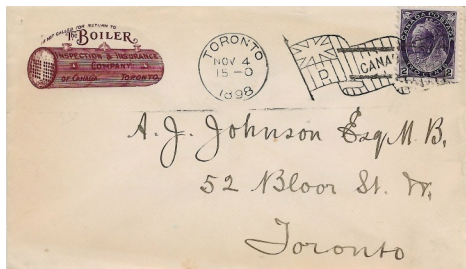 IF NOT CALLED FOR RETURN TO
The BOILER
INSPECTION & INSURANCE
COMPANY
OF CANADA TORONTO
TORONTO
NOV 4
15-0
1898
D
CANADA
CANADA POSTAGE
2 2
A. J. Johnson Esq M.B.
52 Bloor St. W.
Toronto